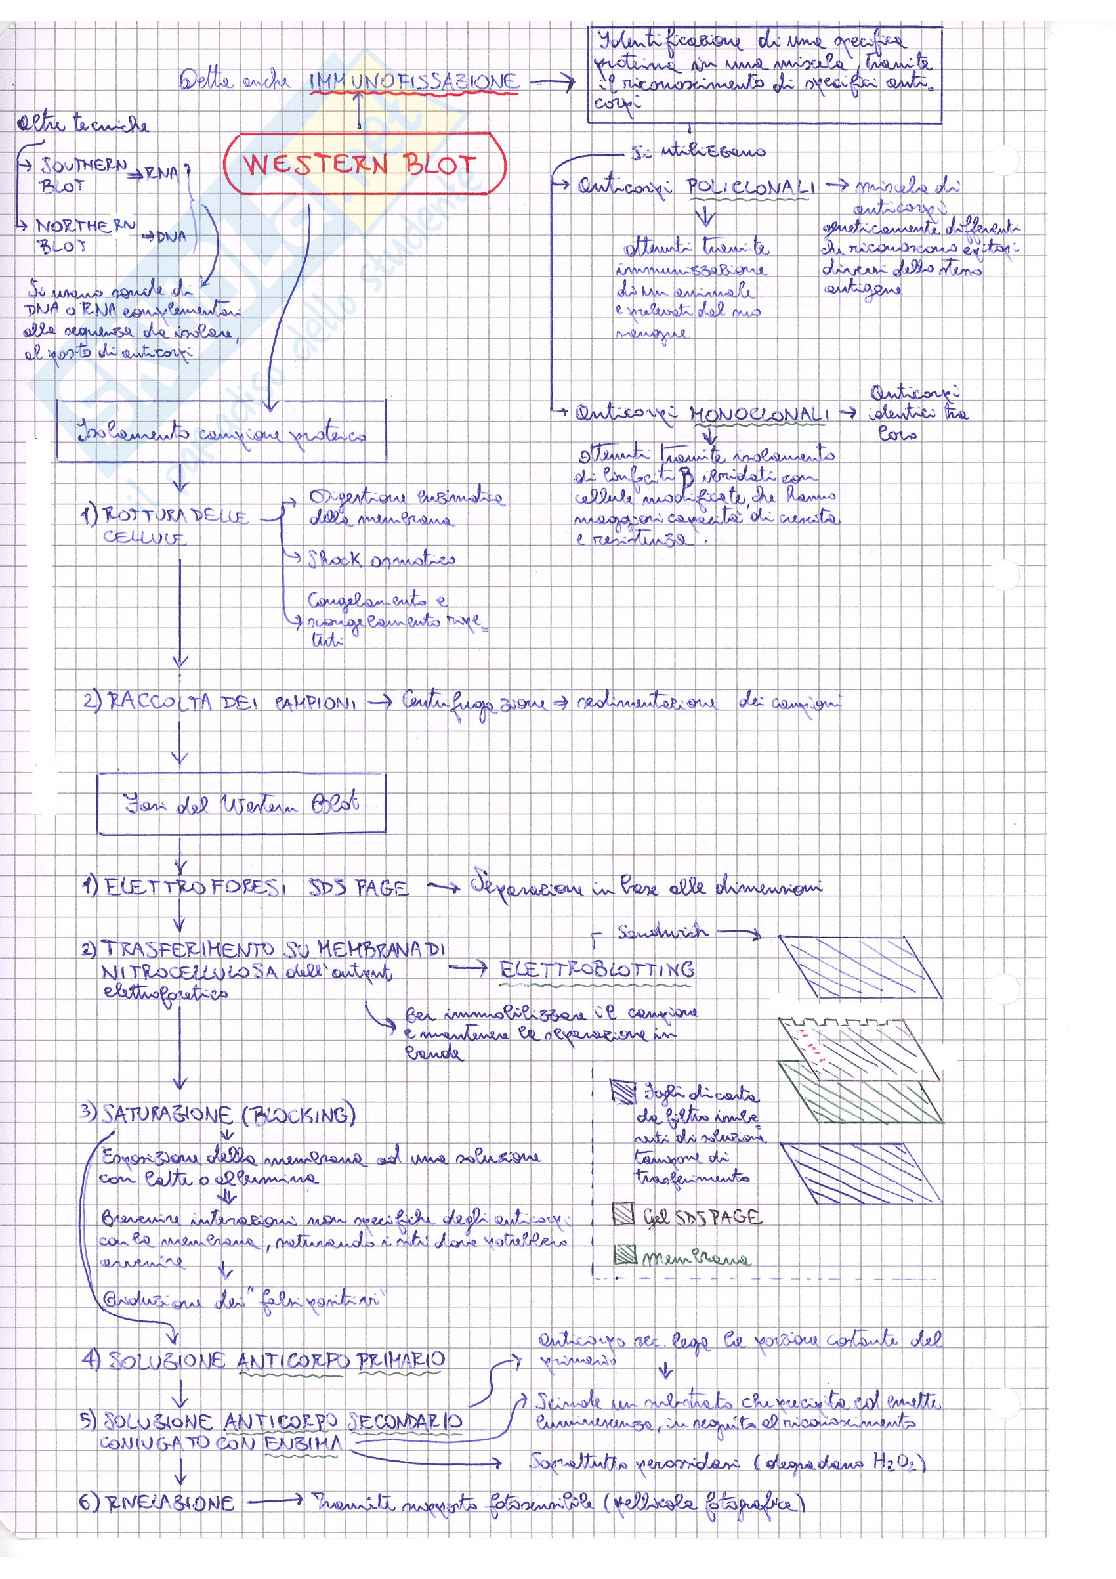 Detta anche IMMUNOFISSAZIONE
Identificazione di una specifica
proteina in una miscela, tramite
il riconoscimento di specifici anti-
corpi
Altre tecniche
SOUTHERN
BLOT → RNA?
NORTHERN
BLOT → DNA
Si usano sonde di
DNA o RNA complementari
alla sequenza da isolare,
al posto di anticorpi
WESTERN BLOT
Si utilizzano
Anticorpi POLICLONALI → miscela di
anticorpi
geneticamente differenti
che riconoscono epitopi
diversi dello stesso
antigene
Ottenuti tramite
immunizzazione
di un animale
e prelevati dal suo
sangue
Anticorpi MONOCLONALI → Anticorpi
identici tra
loro
Ottenuti tramite isolamento
di linfociti B ibridati con
cellule modificate, che hanno
maggiori capacità di crescita
e resistenza.
Isolamento campione proteico
1) ROTTURA DELLE
CELLULE
Digestione enzimatica
della membrana
Shock osmotico
Congelamento e
scongelamento ripe-
tuti
2) RACCOLTA DEI CAMPIONI → Centrifugazione → sedimentazione dei campioni
Fasi del Western Blot
1) ELETTROFORESI SDS PAGE → Separazione in base alle dimensioni
2) TRASFERIMENTO SU MEMBRANA DI
NITROCELLULOSA dell'output
elettroforetico
→ ELETTROBLOTTING
Per immobilizzare il campione
e mantenere la separazione in
bande
Sandwich
Fogli di carta
da filtro imbe-
vuti di soluzioni
tampone di
trasferimento
Gel SDS PAGE
Membrana
3) SATURAZIONE (BLOCKING)
Esposizione della membrana ad una soluzione
con latte o albumina
Prevenire interazioni non specifiche degli anticorpi
con la membrana, saturando i siti dove potrebbero
avvenire
Riduzione dei "falsi positivi"
4) SOLUZIONE ANTICORPO PRIMARIO
5) SOLUZIONE ANTICORPO SECONDARIO
CONIUGATO CON ENZIMA
anticorpo sec. lega la porzione costante del
primario
Scinde un substrato che precipita ed emette
luminescenza, in seguito al riconoscimento
Soprattutto perossidasi (degradano H2O2)
6) RIVELAZIONE → Tramite supporto fotosensibile (pellicola fotografica)
il paradiso dello studente